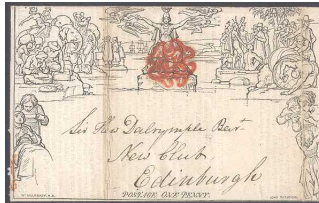 Sir Hew Dalrymple Bart
New Club
Edinburgh
POSTAGE ONE PENNY.